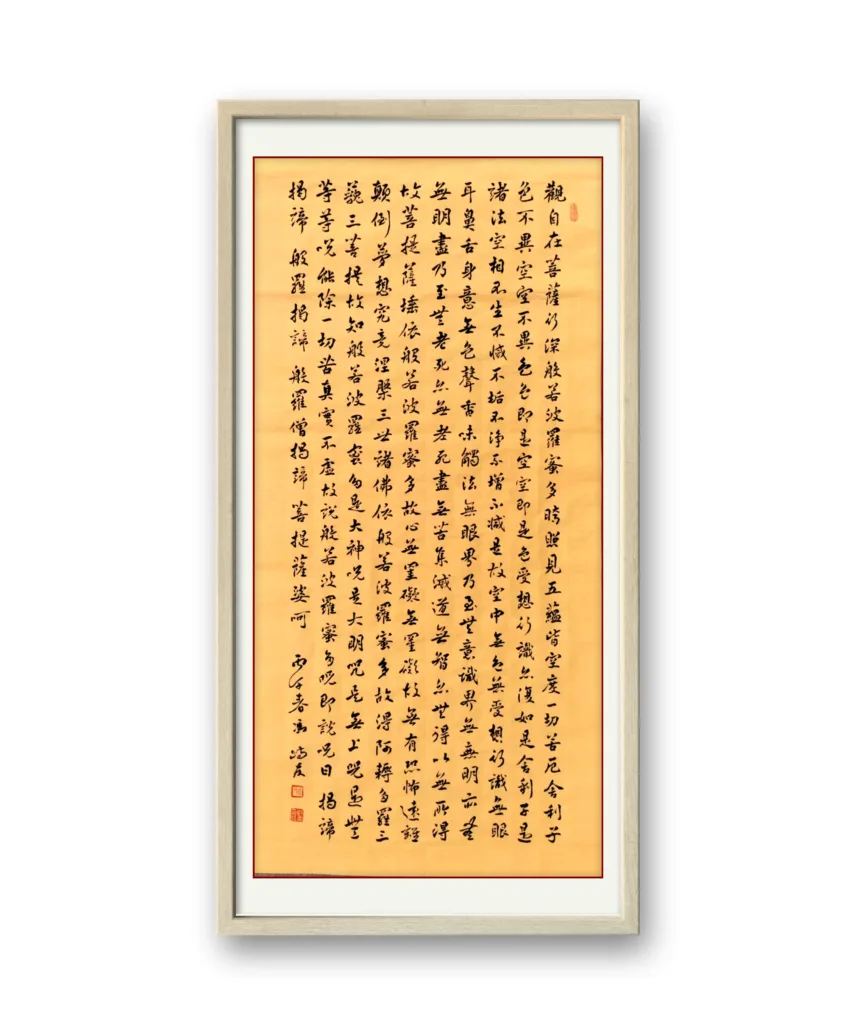 觀自在菩薩行深般若波羅蜜多時照見五蘊皆空度一切苦厄舍利子
色不異空空不異色色即是空空即是色受想行識亦復如是舍利子是
諸法空相不生不滅不垢不淨不增不減是故空中無色無受想行識無眼
耳鼻舌身意無色聲香味觸法無眼界乃至無意識界無無明亦無
無明盡乃至無老死亦無老死盡無苦集滅道無智亦無得以無所得
故菩提薩埵依般若波羅蜜多故心無罣礙無罣礙故無有恐怖遠離
顛倒夢想究竟涅槃三世諸佛依般若波羅蜜多故得阿耨多羅三
藐三菩提故知般若波羅蜜多是大神咒是大明咒是無上咒是無
等等咒能除一切苦真實不虛故說般若波羅蜜多咒即說咒曰 揭諦
揭諦 般羅揭諦 般羅僧揭諦 菩提薩婆呵 丙午春